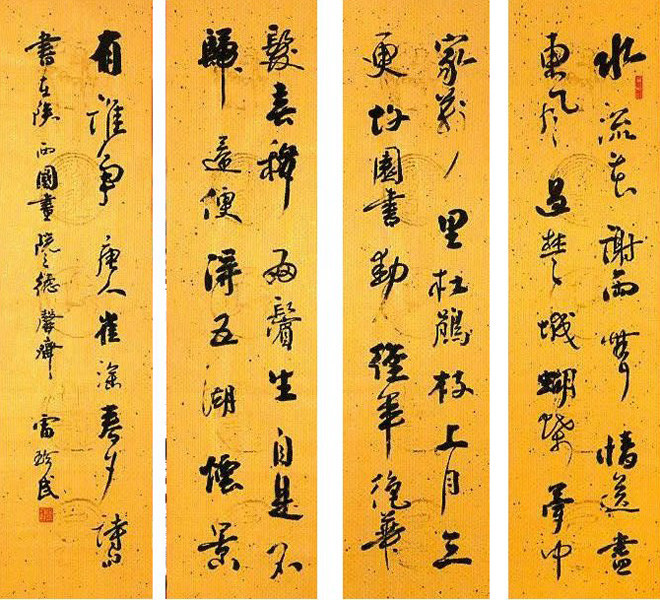 水流花謝兩無情送盡
東風過楚城蝴蝶夢中
家萬里杜鵑枝上月三
更故園書動經年絕華
髮春移兩鬢生自是不
歸還便得五湖煙景
有誰爭 唐人崔塗春夕詩
書在陝西國畫院之德馨齋 雷珍民